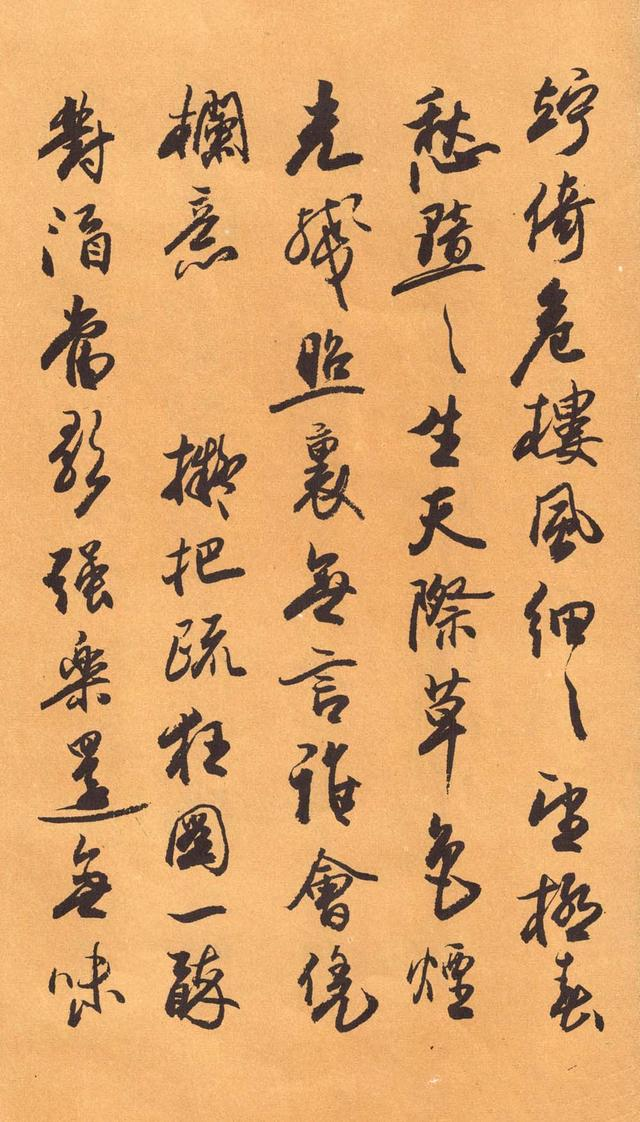 竚倚危樓風細〻望極春
愁黯〻生天際草色煙
光殘照裏無言誰會凭
欄意 擬把疏狂圖一醉
對酒當歌强樂還無味